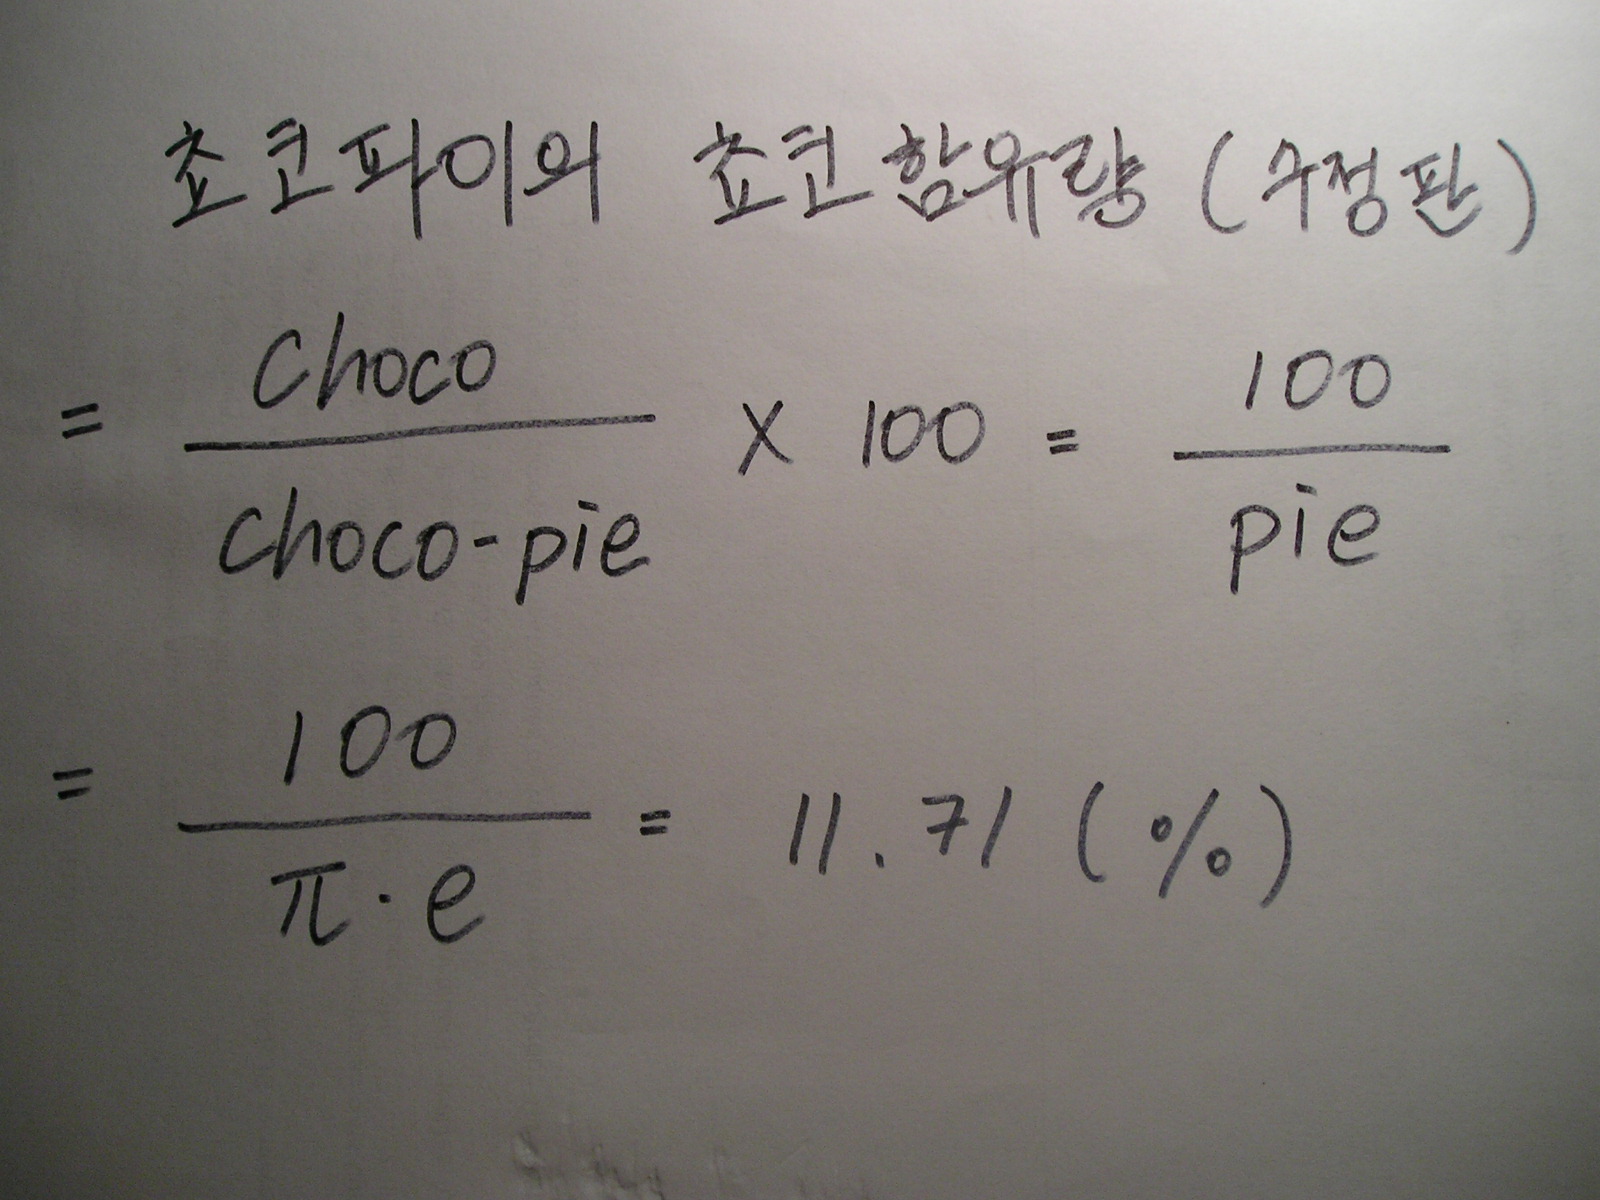 쵸코파이의 쵸코함유량 (수정판)
= choco / choco-pie × 100 = 100 / pie
= 100 / π·e = 11.71 (%)